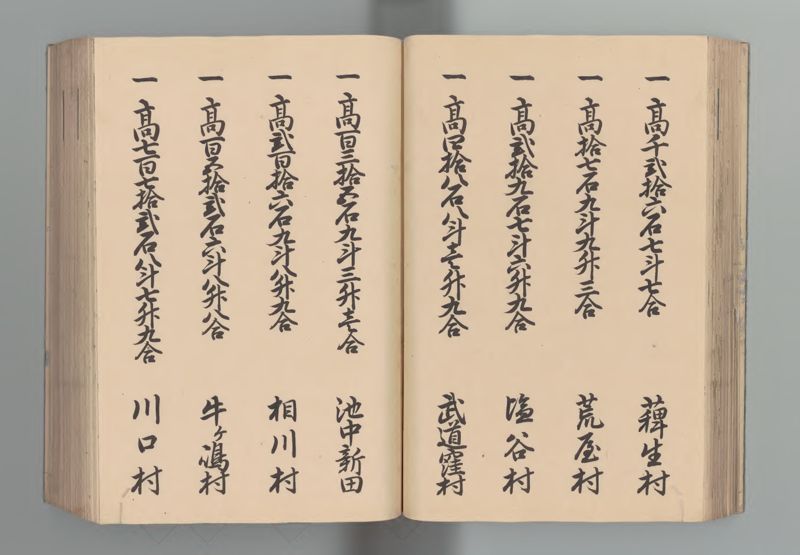 一 高千弐拾六石七斗七合 薭生村
一 高拾七石九斗九升三合 荒屋村
一 高弐拾九石七斗六升九合 塩谷村
一 高四拾八石八斗壱升九合 武道窪村
一 高百三拾五石九斗三升壱合 池中新田
一 高弐百拾六石九斗八升九合 相川村
一 高百五拾弐石六斗八升八合 牛ヶ嶋村
一 高七百七拾弐石八斗七升九合 川口村